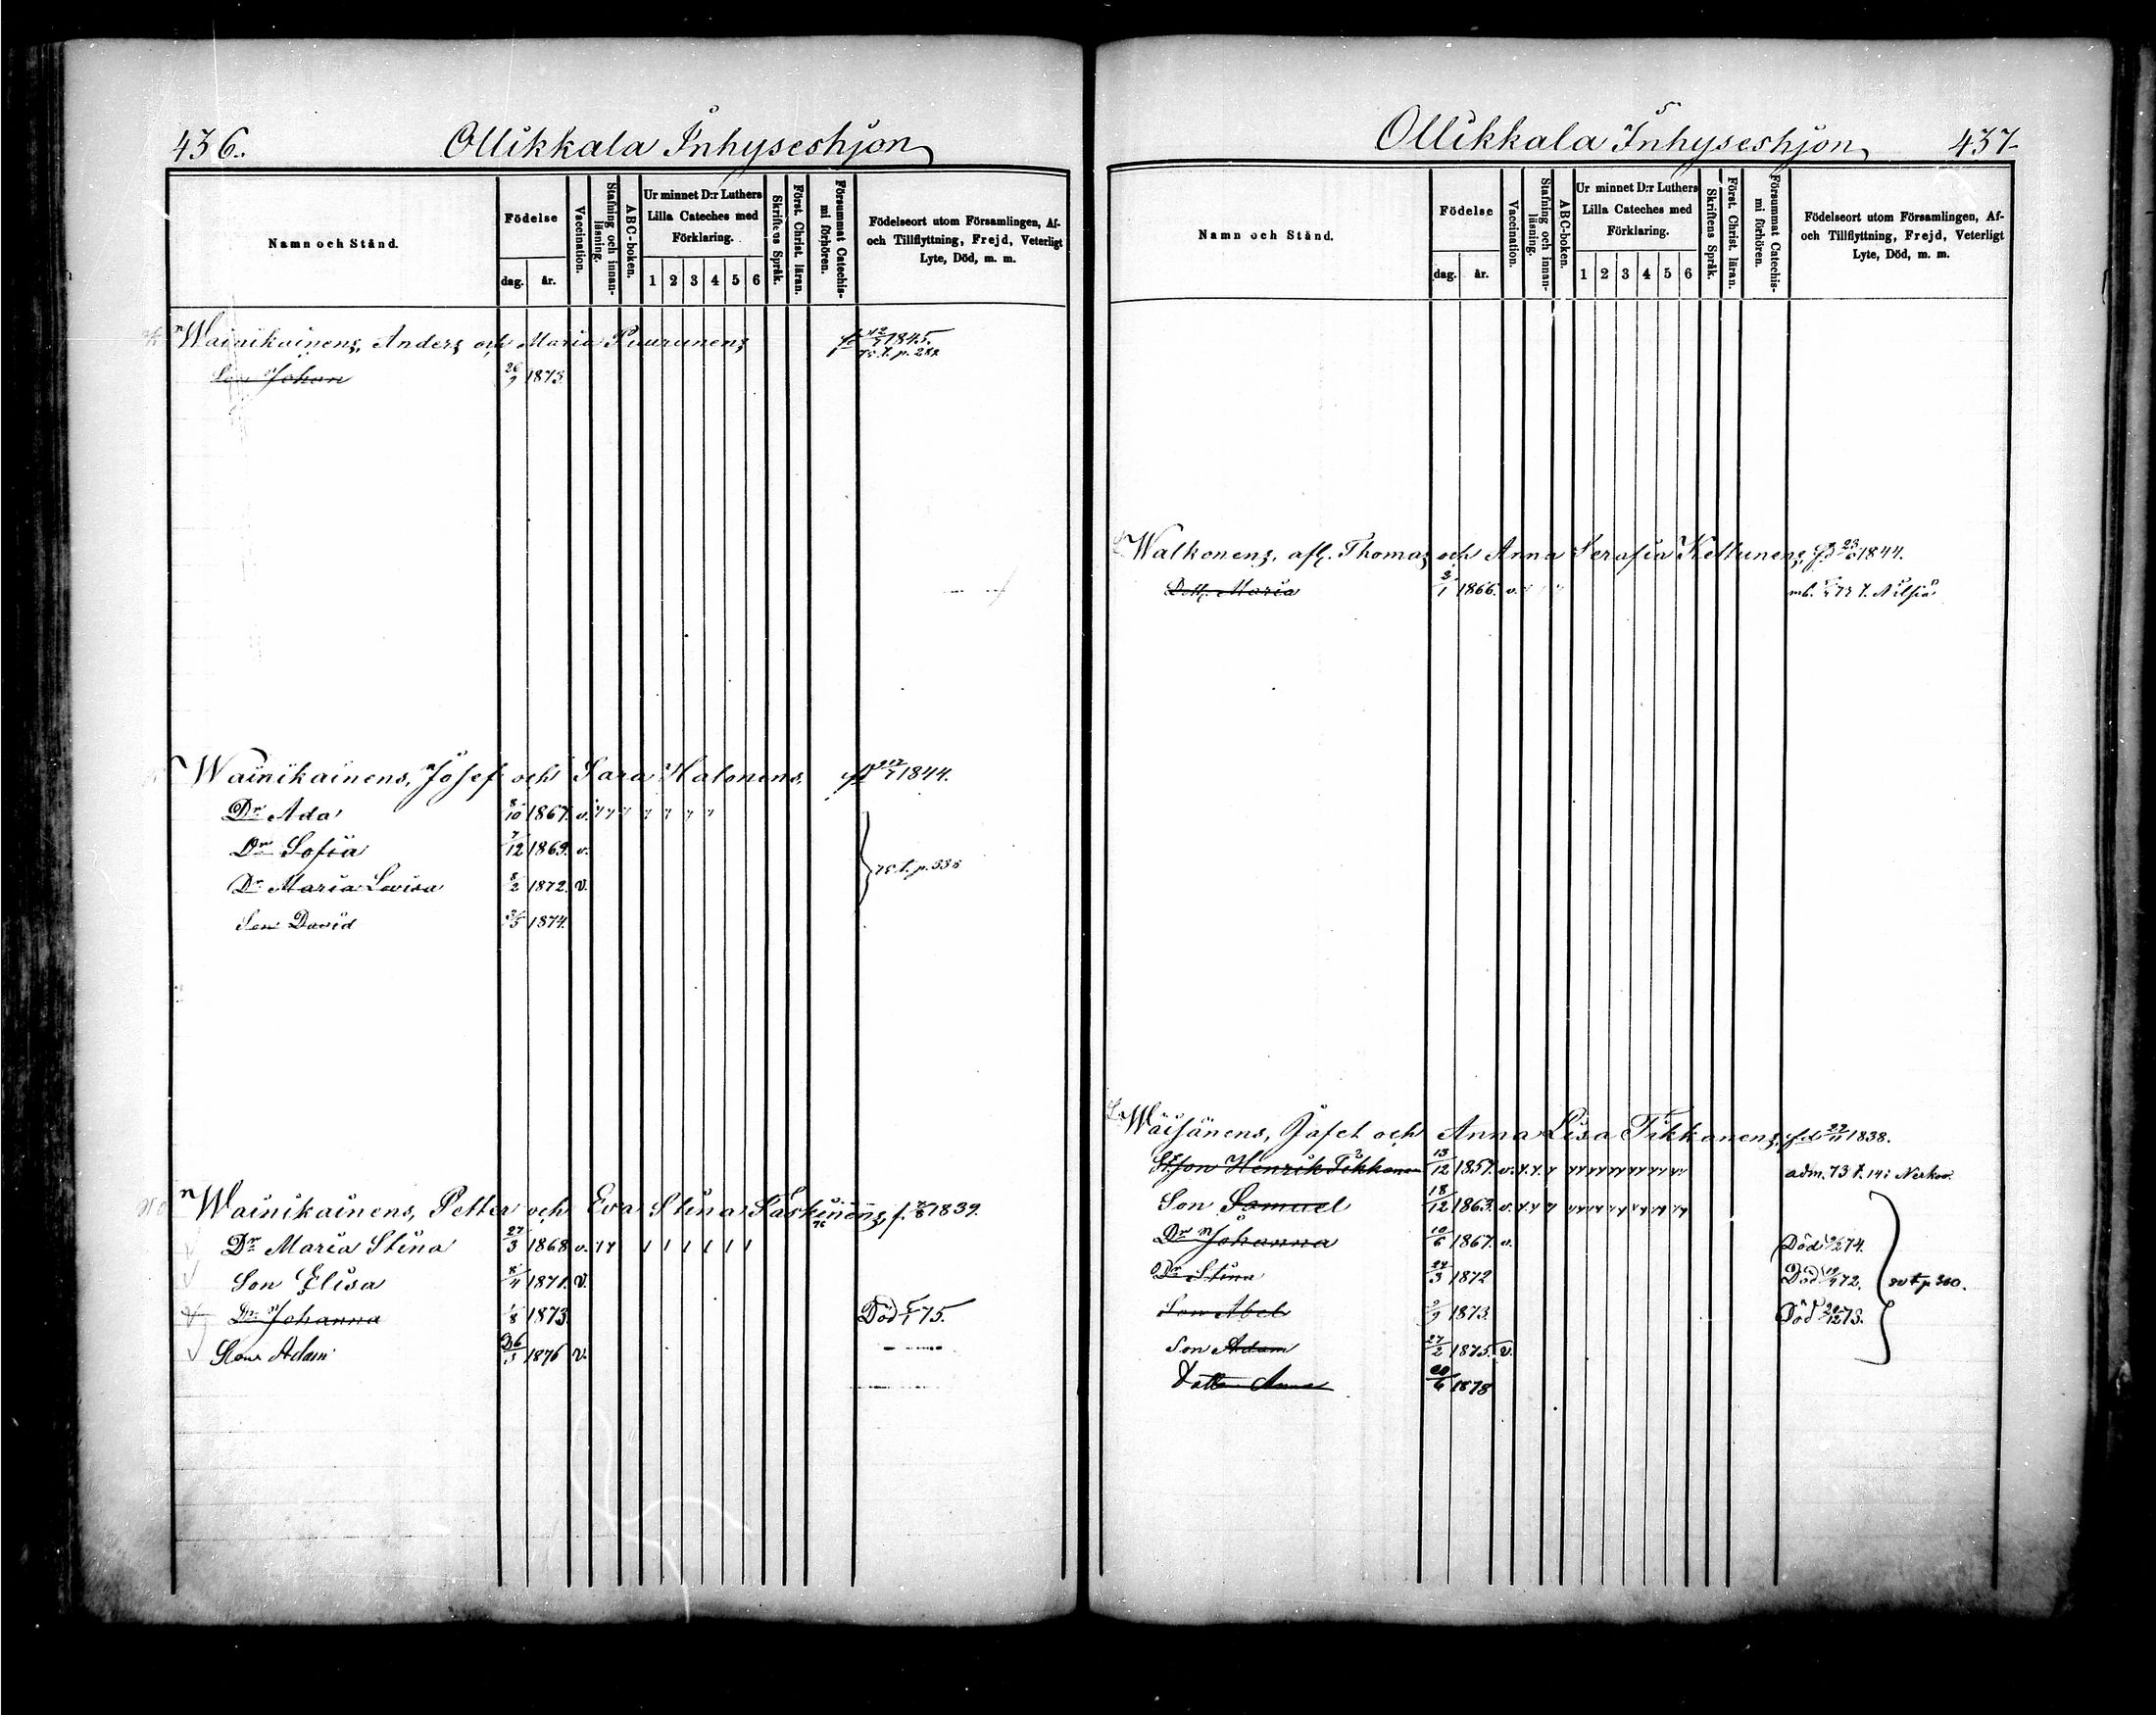 436.
Ollikkala Inhyseshjon
Namn och Stånd.
Födelse
dag. år.
Vaccination.
Stafning och innanläsning.
ABC-boken.
Ur minnet D:r Luthers Lilla Cateches med Förklaring.
1 2 3 4 5 6
Skriftens Språk.
Först. Christ. läran.
Försummat Catechismi förhören.
Födelseort utom Församlingen, Af- och Tillflyttning, Frejd, Veterligt Lyte, Död, m. m.
Wainikainens, Anders och Maria Puurunens 1845.
Son Johan 26/9 1873.
Wainikainens, Josef och Sara Halonens 1844.
Dr Ada 8/10 1867. v.
Dr Sofia 7/12 1869. v.
Dr Maria Lovisa 8/2 1872. v.
Son David 1874.
Wainikainens, Petter och Eva Stina Saskinens, f. 1839.
Dr Maria Stina 27/3 1868 v.
Son Elisa 1871. v.
Dr Johanna 1/8 1873. Död 75.
Son Adam 1876 v.
Ollikkala Inhyseshjon
437
Namn och Stånd.
Födelse
dag. år.
Vaccination.
Stafning och innanläsning.
ABC-boken.
Ur minnet D:r Luthers Lilla Cateches med Förklaring.
1 2 3 4 5 6
Skriftens Språk.
Först. Christ. läran.
Försummat Catechismi förhören.
Födelseort utom Församlingen, Af- och Tillflyttning, Frejd, Veterligt Lyte, Död, m. m.
Walkonens, afl. Thomas och Anna Serafia Kettunens, 1844.
Dott. Maria 1866. v. Nilsiä
Wäisänens, Jafet och Anna Lisa Tikkanens, 22/11 1838.
St.son Henrik Tikkanen 13/12 1857. v. adm. 73
Son Samuel 18/12 1863. v.
Dr Johanna 10/6 1867. v. Död 74.
Dr Stina 27/3 1872 Död 72.
Son Abel 2/9 1873. Död 73.
Son Adam 27/2 1875. v.
Dott Anna 1878